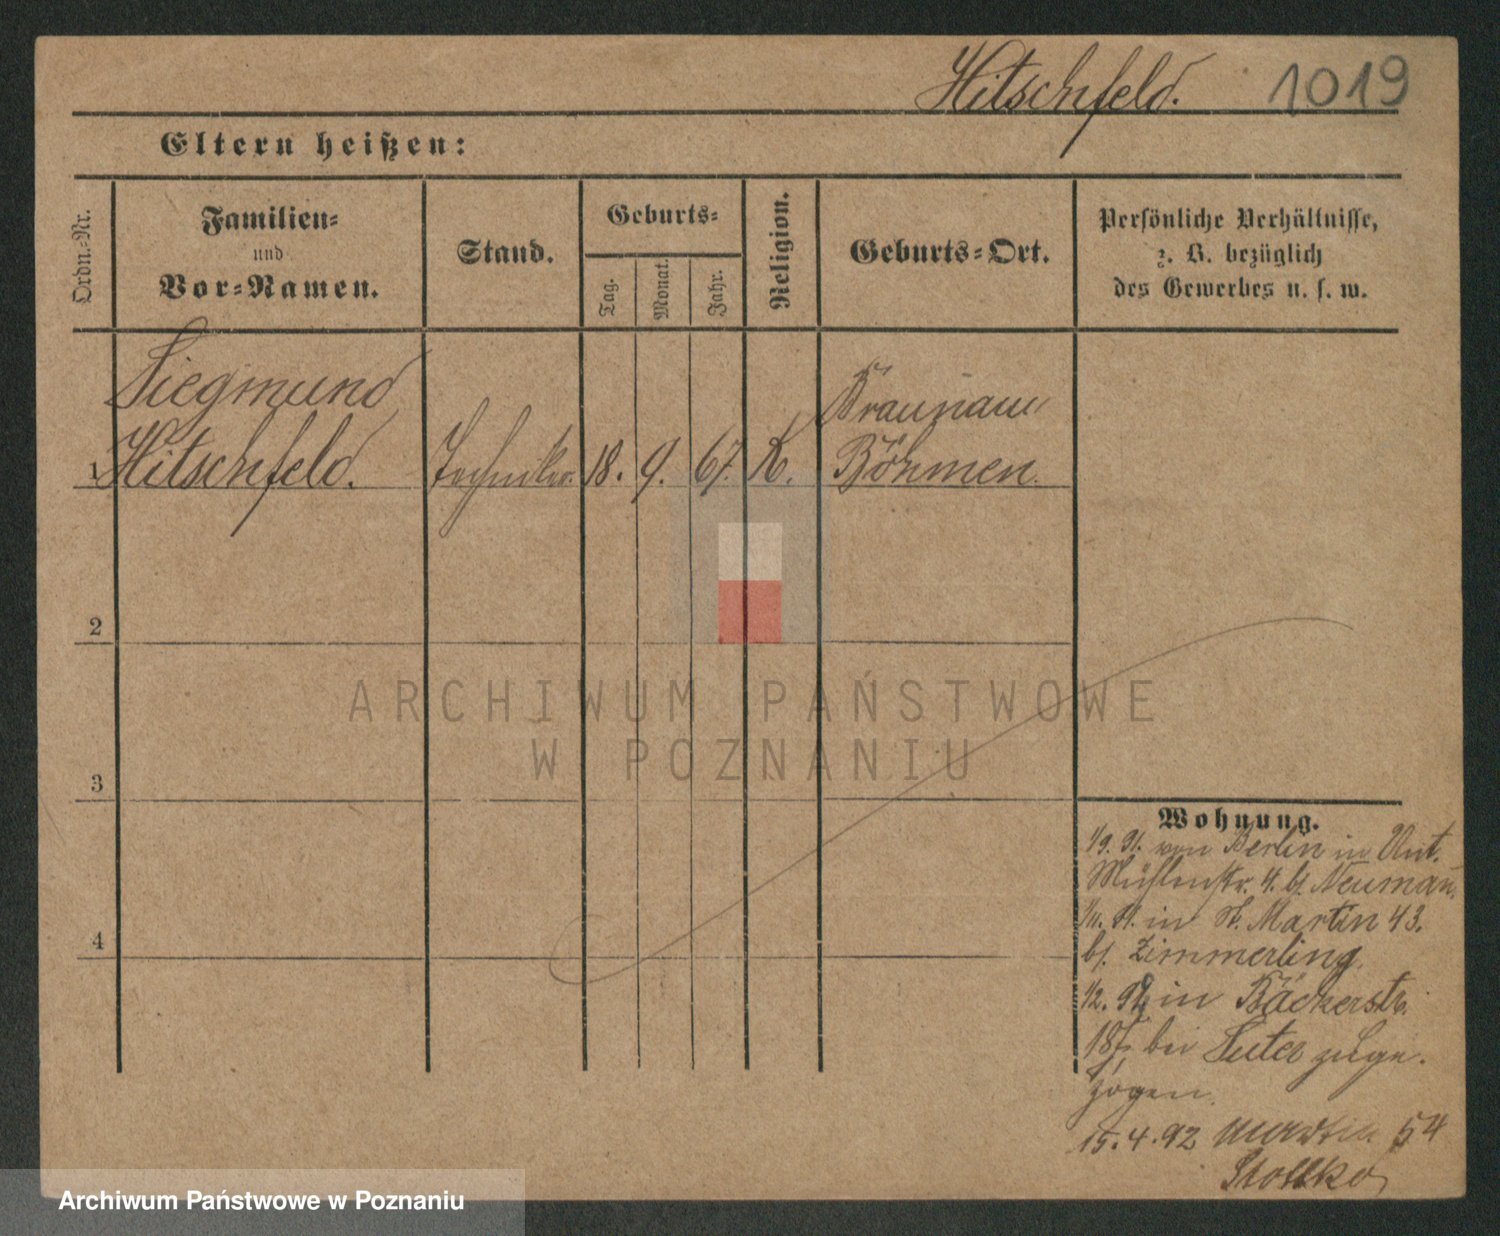 Hitschfeld. 1019
Eltern heißen:
Ordn.-Nr.
Familien-
und
Vor-Namen.
Stand.
Geburts-
Tag.
Monat.
Jahr.
Religion.
Geburts-Ort.
Persönliche Verhältnisse,
z. B. bezüglich
des Gewerbes u. s. w.
Siegmund
1 Hitschfeld. Techniker. 18. 9. 67. K.
Braunau
Böhmen.
2
3
4
ARCHIWUM PAŃSTWOWE
W POZNANIU
Wohnung.
1/9. 91. von Berlin in Unt.
Mühlenstr. 4. b/. Neumann.
91. in St. Martin 43.
b/. Zimmerling.
1/2. 92 in Bäckerstr.
bei Suter zuge-
zogen.
15.4.92 Martin 54
Archiwum Państwowe w Poznaniu